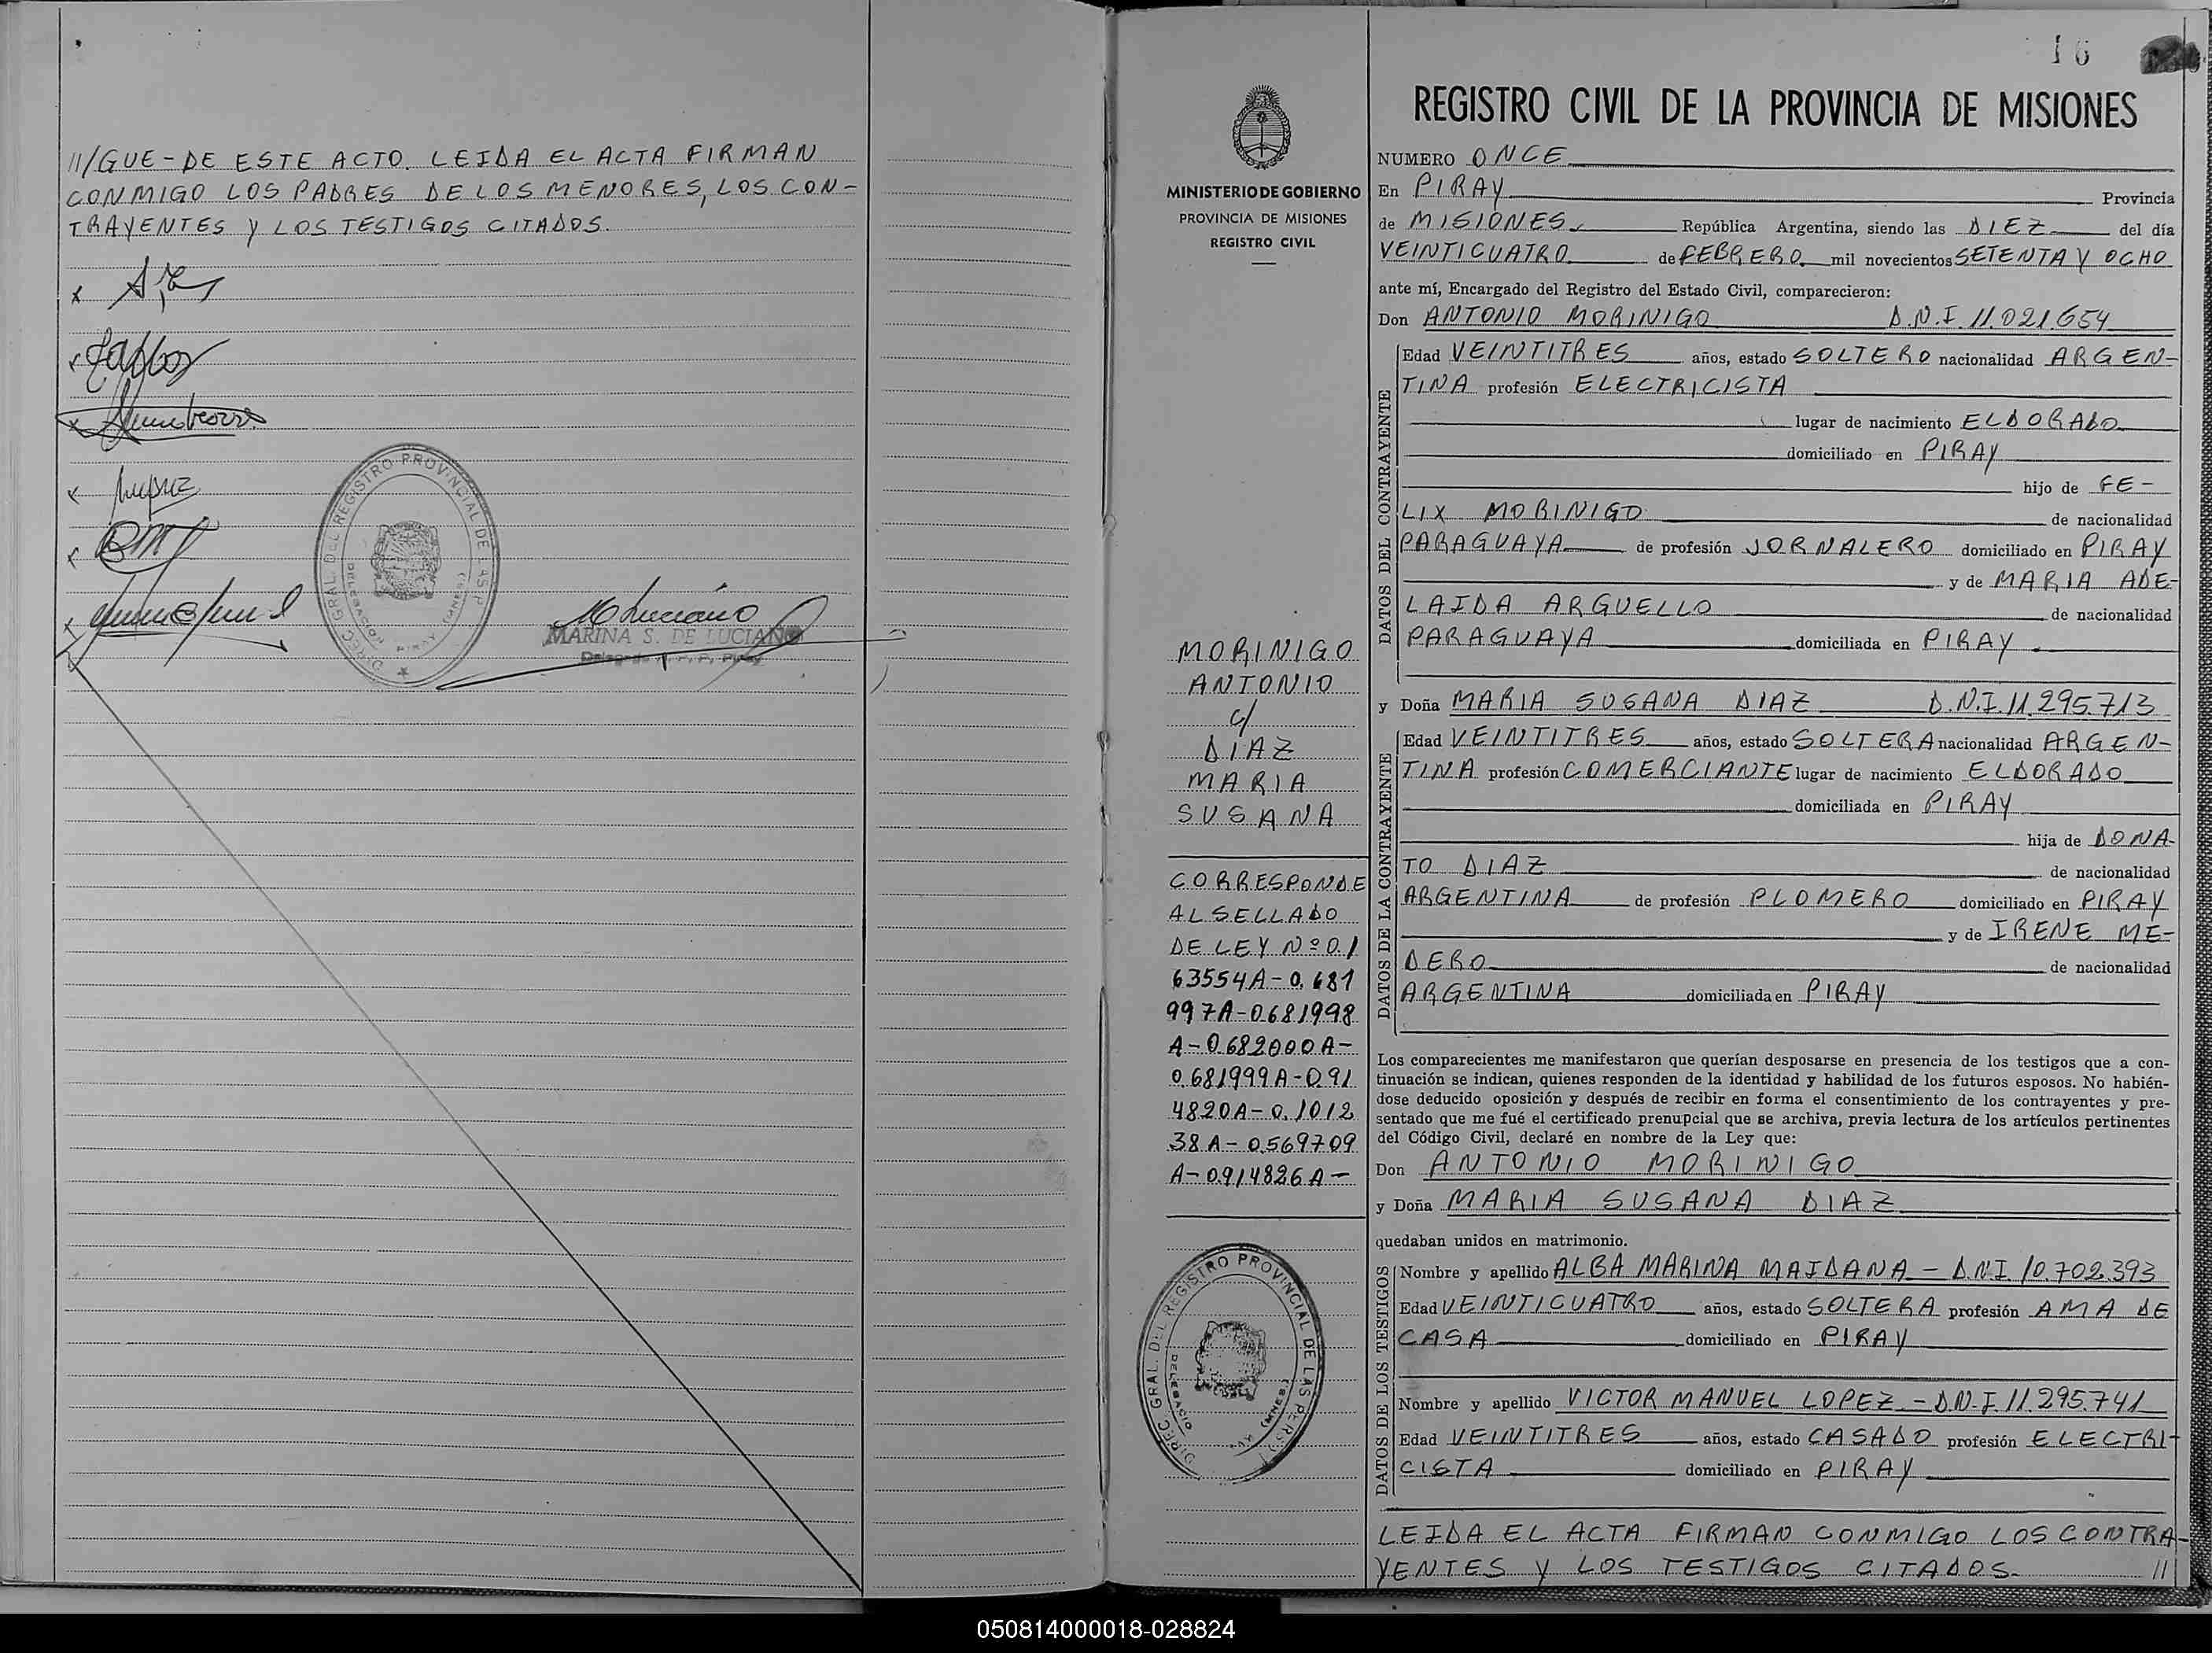 11/GUE-DE ESTE ACTO. LEIDA EL ACTA FIRMAN
CONMIGO LOS PADRES DE LOS MENORES, LOS CON-
TRAYENTES Y LOS TESTIGOS CITADOS.
DIREC GRAL. DEL REGISTRO PROVINCIAL DE
MARINA S. DE LUCIANO
16
REGISTRO CIVIL DE LA PROVINCIA DE MISIONES
MINISTERIO DE GOBIERNO
PROVINCIA DE MISIONES
REGISTRO CIVIL
MORINIGO
ANTONIO
c/
DIAZ
MARIA
SUSANA
CORRESPONDE
AL SELLADO
DE LEY Nº 0.1
63554A-0.681
997A-0681998
A-0.682000A-
0.681999A-091
4820A-0.1012
38A-0569709
A-0914826A-
DIREC GRAL. DEL REGISTRO PROVINCIAL DE LAS PERS.
NUMERO ONCE
En PIRAY Provincia
de MISIONES República Argentina, siendo las DIEZ del día
VEINTICUATRO de FEBRERO mil novecientos SETENTA Y OCHO
ante mí, Encargado del Registro del Estado Civil, comparecieron:
Don ANTONIO MORINIGO D.N.I. 11.021.654
DATOS DEL CONTRAYENTE
Edad VEINTITRES años, estado SOLTERO nacionalidad ARGEN-
TINA profesión ELECTRICISTA
lugar de nacimiento ELDORADO
domiciliado en PIRAY
hijo de FE-
LIX MORINIGO de nacionalidad
PARAGUAYA de profesión JORNALERO domiciliado en PIRAY
y de MARIA ADE-
LAIDA ARGUELLO de nacionalidad
PARAGUAYA domiciliada en PIRAY
y Doña MARIA SUSANA DIAZ D.N.I. 11.295.713
DATOS DE LA CONTRAYENTE
Edad VEINTITRES años, estado SOLTERA nacionalidad ARGEN-
TINA profesión COMERCIANTE lugar de nacimiento ELDORADO
domiciliada en PIRAY
hija de DONA-
TO DIAZ de nacionalidad
ARGENTINA de profesión PLOMERO domiciliado en PIRAY
y de IRENE ME-
DERO de nacionalidad
ARGENTINA domiciliada en PIRAY
Los comparecientes me manifestaron que querían desposarse en presencia de los testigos que a con-
tinuación se indican, quienes responden de la identidad y habilidad de los futuros esposos. No habién-
dose deducido oposición y después de recibir en forma el consentimiento de los contrayentes y pre-
sentado que me fué el certificado prenupcial que se archiva, previa lectura de los artículos pertinentes
del Código Civil, declaré en nombre de la Ley que:
Don ANTONIO MORINIGO
y Doña MARIA SUSANA DIAZ
quedaban unidos en matrimonio.
DATOS DE LOS TESTIGOS
Nombre y apellido ALBA MARINA MAIDANA - D.N.I. 10.702.393
Edad VEINTICUATRO años, estado SOLTERA profesión AMA DE
CASA domiciliado en PIRAY
Nombre y apellido VICTOR MANUEL LOPEZ - D.N.I. 11.295.741
Edad VEINTITRES años, estado CASADO profesión ELECTRI-
CISTA domiciliado en PIRAY
LEIDA EL ACTA FIRMAN CONMIGO LOS CONTRA-
YENTES Y LOS TESTIGOS CITADOS. //
050814000018-028824